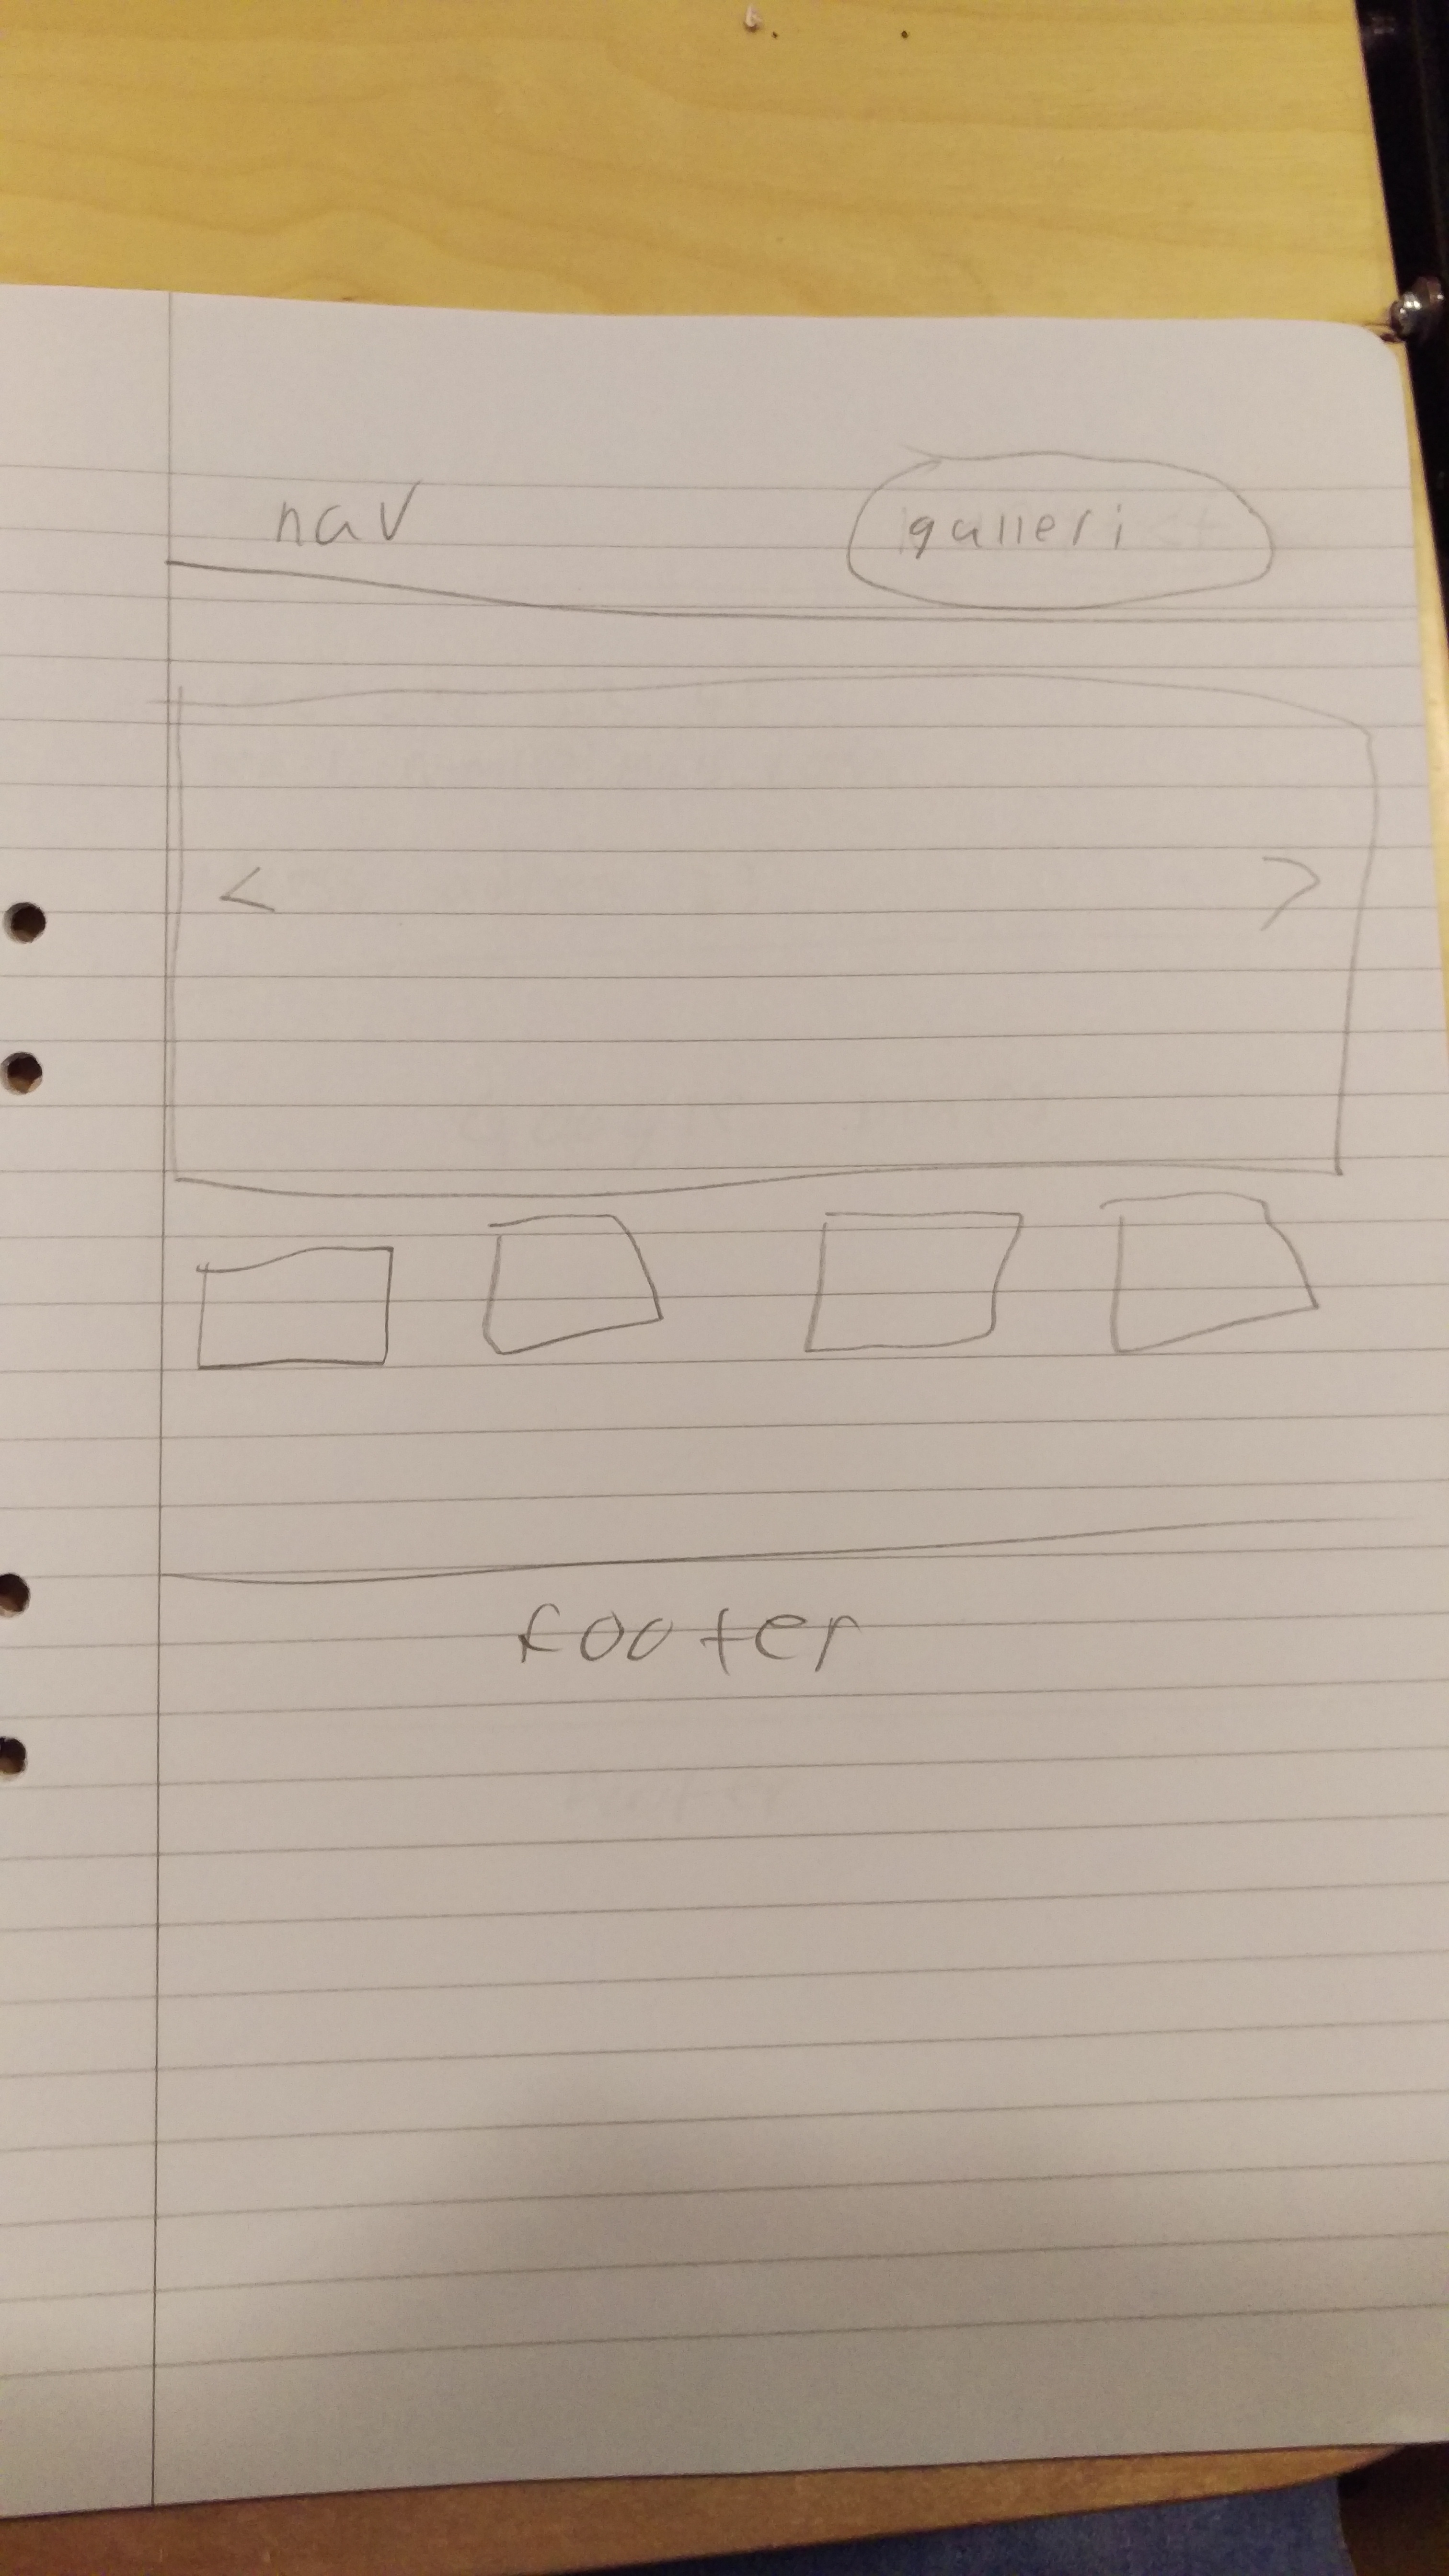 nav galleri
< >
footer